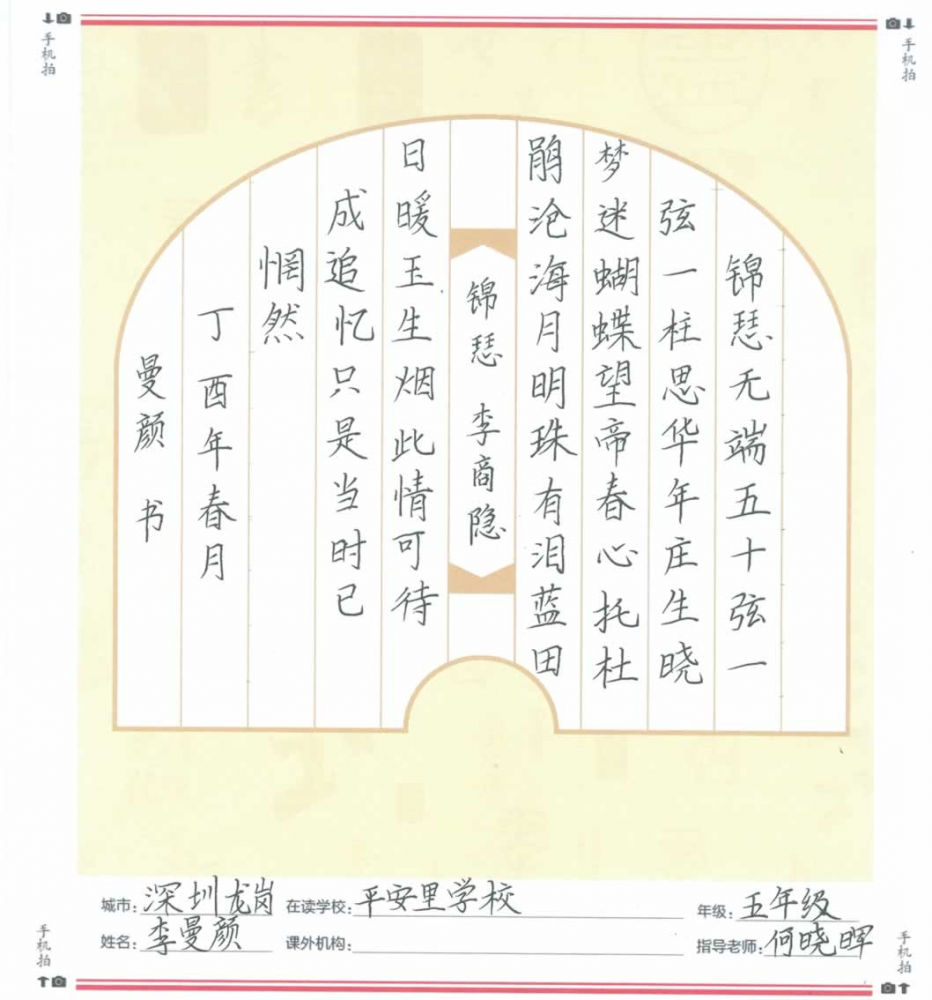 手机拍
手机拍
锦瑟无端五十弦一
弦一柱思华年庄生晓
梦迷蝴蝶望帝春心托杜
鹃沧海月明珠有泪蓝田
锦瑟 李商隐
日暖玉生烟此情可待
成追忆只是当时已
惘然
丁酉年春月
曼颜 书
城市：深圳龙岗 在读学校：平安里学校 年级：五年级
姓名：李曼颜 课外机构： 指导老师：何晓晖
手机拍
手机拍